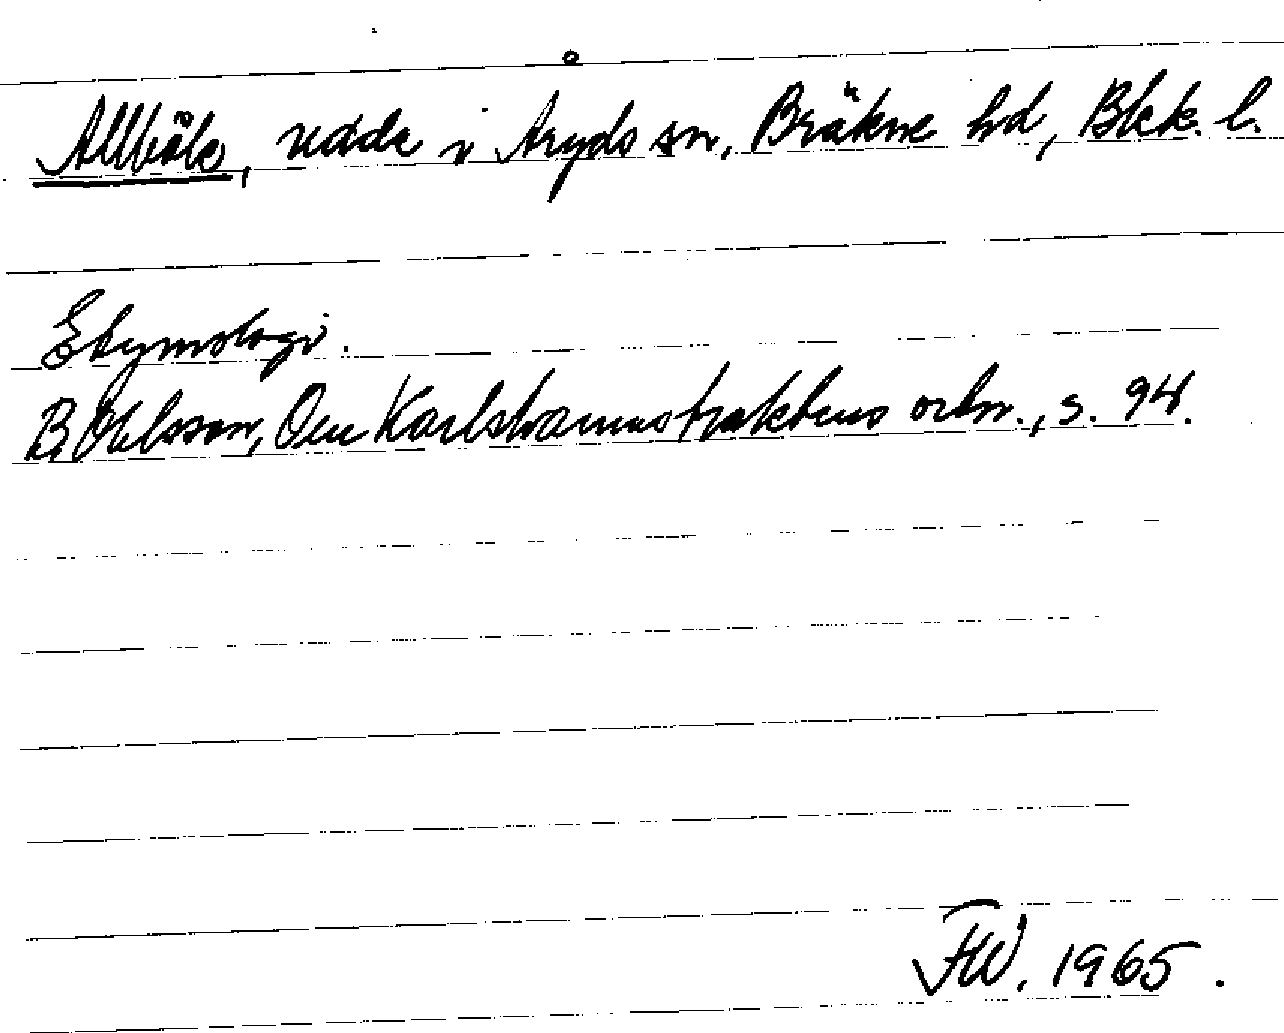 Allbök, udde i Åryds sn, Bräkne hd, Blek. l.
Etymologi.
B. Ohlsson, Om Karlshamnstraktens ortn., s. 94.
FW. 1965.